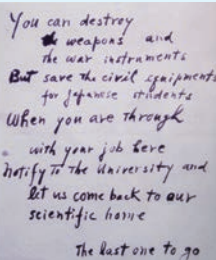 You can destroy
the weapons and
the war instruments
But save the civil equipments
for Japanese students
When you are through
with your job here
Notify to the University and
let us come back to our
scientific home
The last one to go